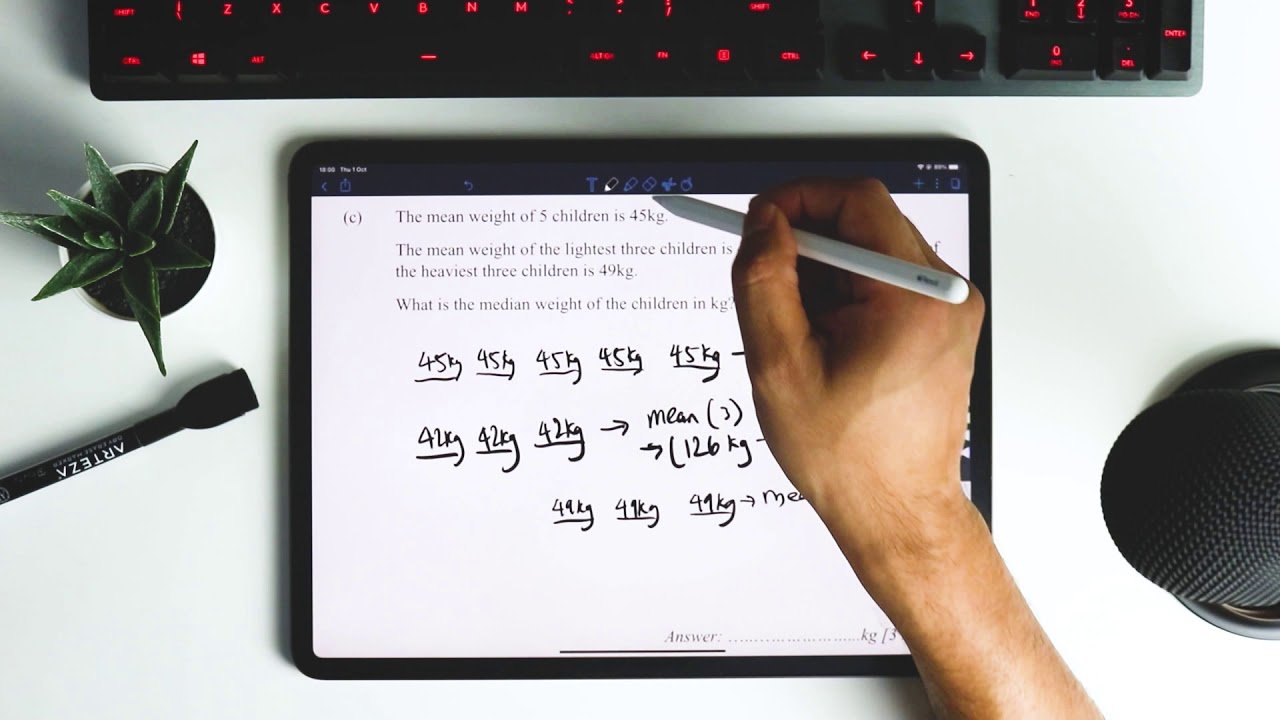 SHIFT Z X C V B N M ; : / SHIFT ↑ 1 END 2 ↓ 3 PG-DN
CTRL ALT ALT GR FN CTRL ← ↓ → 0 INS . DEL ENTER
18:00 Thu 1 Oct 89%
(c) The mean weight of 5 children is 45kg.
The mean weight of the lightest three children is
the heaviest three children is 49kg.
What is the median weight of the children in kg?
45kg 45kg 45kg 45kg 45kg
42kg 42kg 42kg → mean (3)
→ (126 kg
49kg 49kg 49kg →
Answer: kg [3
ARTEZA
DRY ERASE MARKER